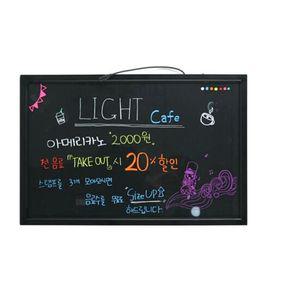 LIGHT Cafe
아메리카노 2,000원
전 음료 「TAKE OUT」시 20% 할인
스탬프를 3개 모아오시면
음료수를 무료 Size UP⇧
해드립니다.